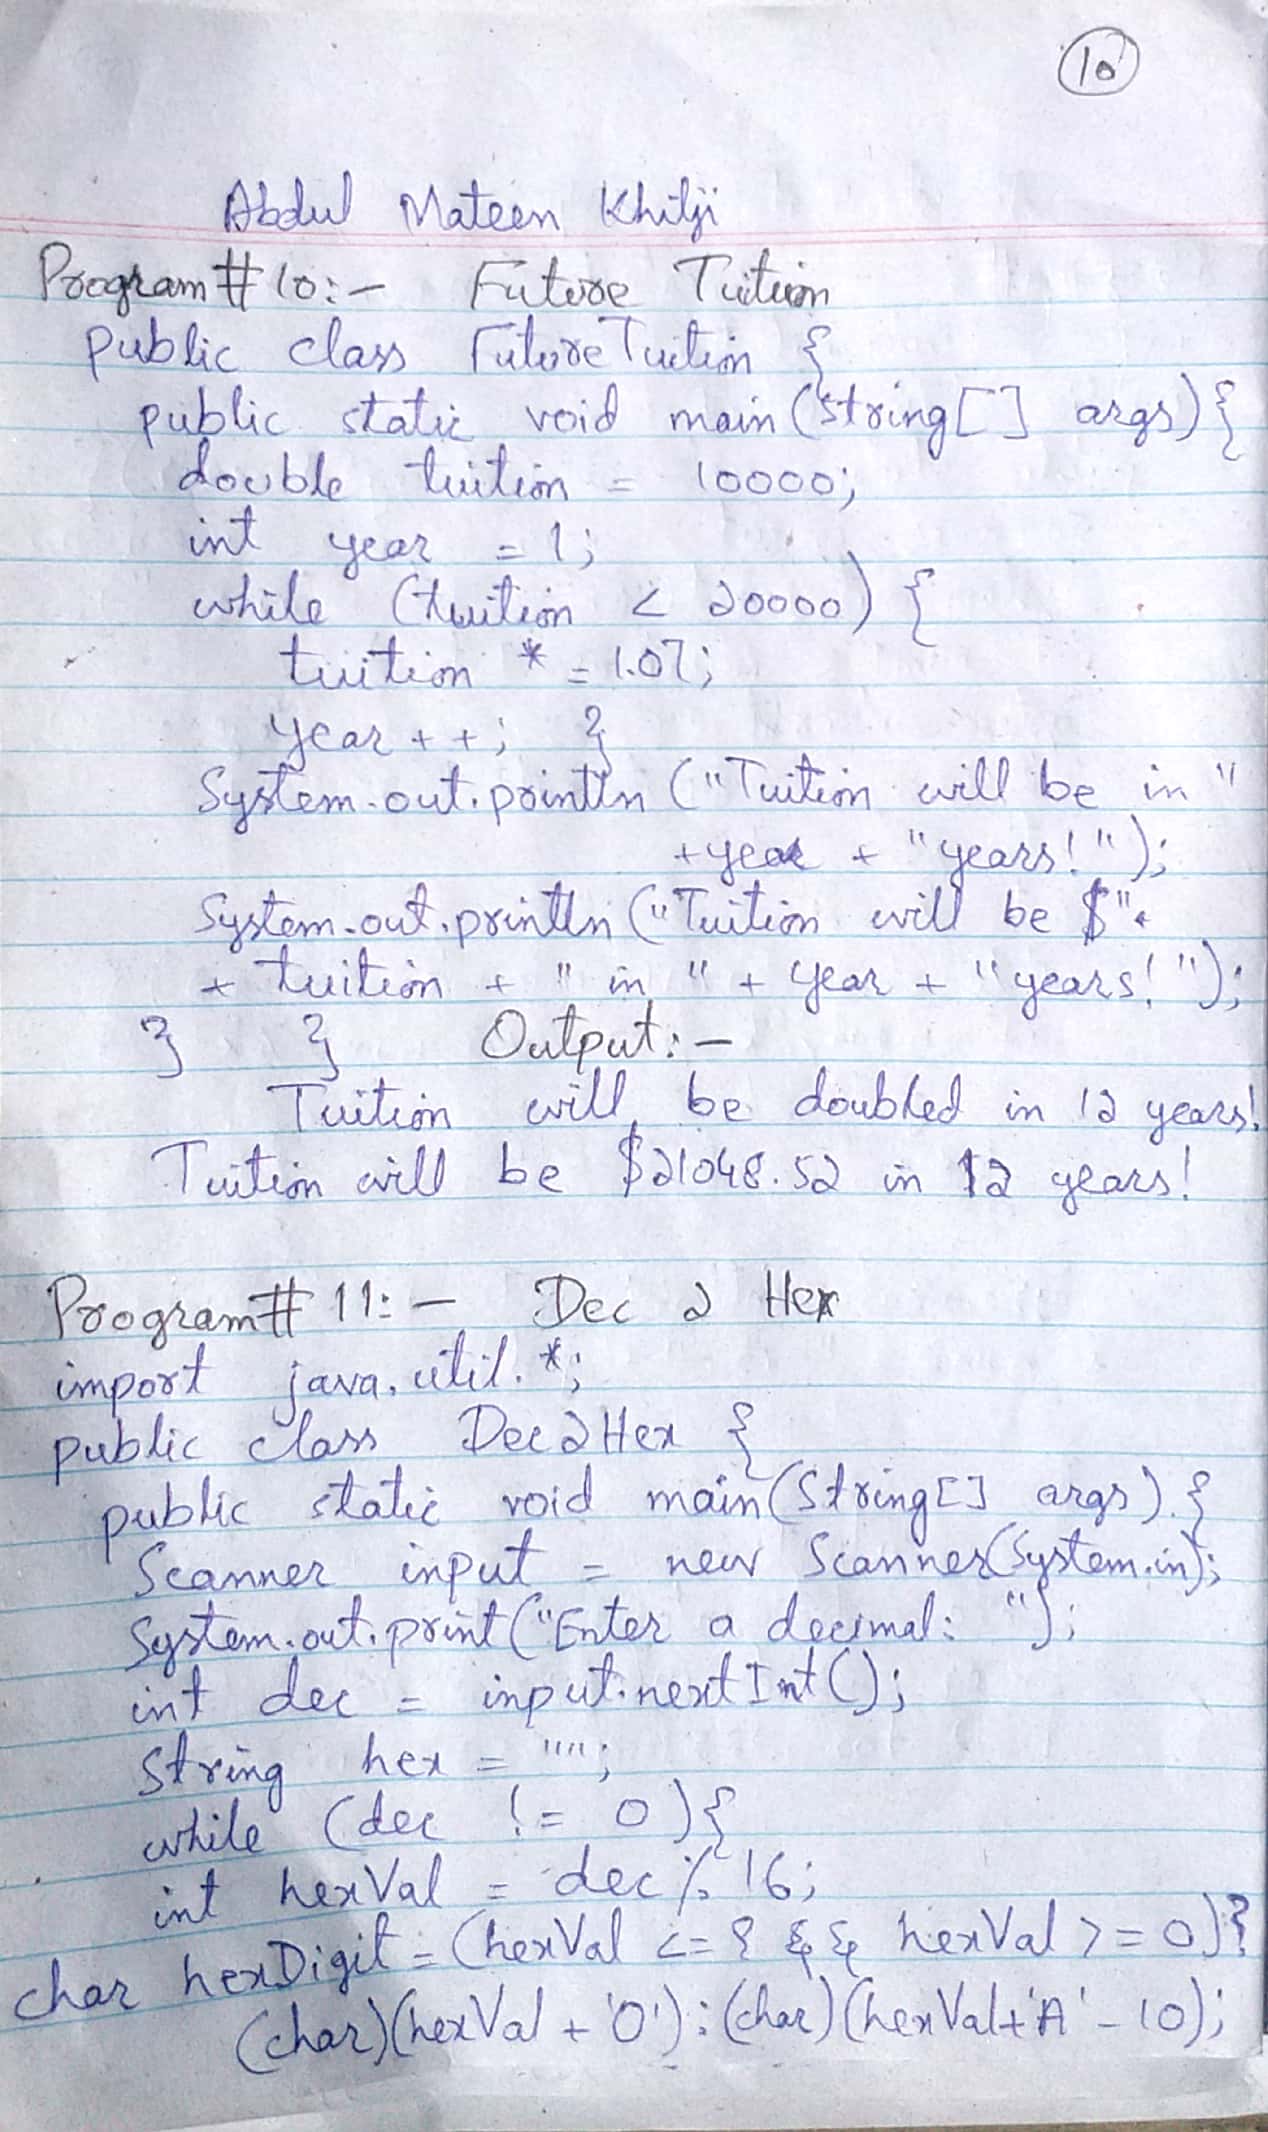 10
Abdul Mateen Khilji
Program # 10:- Future Tuition
public class FutureTuition {
public static void main (String[] args) {
double tuition = 10000;
int year = 1;
while (tuition < 20000) {
tuition * = 1.07;
year + +; }
System.out.println ("Tuition will be in "
+ year + "years!");
System.out.println ("Tuition will be $"
+ tuition + " in " + year + "years!");
} } Output:-
Tuition will be doubled in 12 years!
Tuition will be $21048.52 in 12 years!
Program # 11:- Dec 2 Hex
import java.util.*;
public class Dec2Hex {
public static void main(String[] args) {
Scanner input = new Scanner(System.in);
System.out.print("Enter a decimal: ");
int dec = input.nextInt();
String hex = "";
while (dec != 0) {
int hexVal = dec % 16;
char hexDigit = (hexVal <= && hexVal >= 0)?
(char)(hexVal + '0') : (char)(hexVal+'A' - 10);